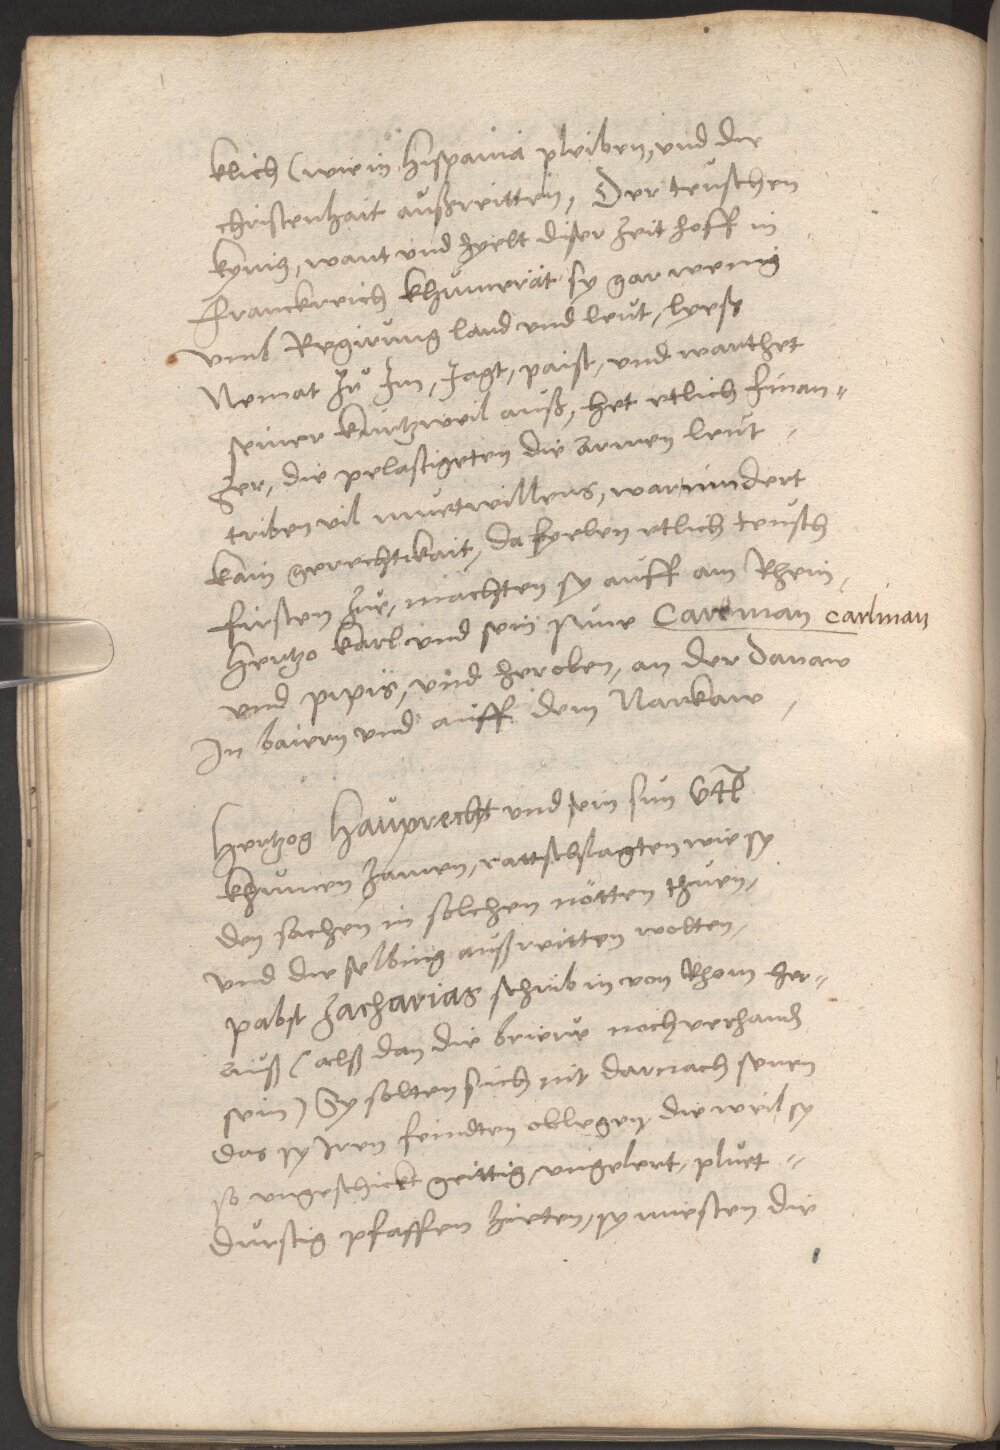 klich (wie in hispania pleiben, und die
christenhait außreitten, Der teuschen
kynig, want und hyelt diser zeit hoff in
Franckreich khumerät sy gar wenig
umb Regirung land und leut, lyeß
Nemat zů Im, Jagt, paist, und warthet
seiner kurtzweil auß, het etlich finan-
zer, die pelastigeten die armen leut,
triben vil muetwillens, war nindert
kain gerechtikait, da fyelen etlich teusch
firsten zue, machten sy auff am Rhein,
Hertzo karl und sein sune Caroman carlman
und pipin, und heroben, an der Danaw
In bairn und auff dem Narkaw,
Hertzog Hauprecht und sein sun Utl
khumen zamen, rattschlagten wie sy
den sachen in solchen nötten thuen,
und die selbing außreitten wolten,
pabst Zacharias schrib in von Rhom her-
auß (alß dan die brieve noch verhand
sein) Sy solten sich nit darnach senen
das sy Iren feindten oblegen, die weil sy
so ungeschickt geittig, ungelert, pluet-
durstig pfaffen hieten, sy miesten die